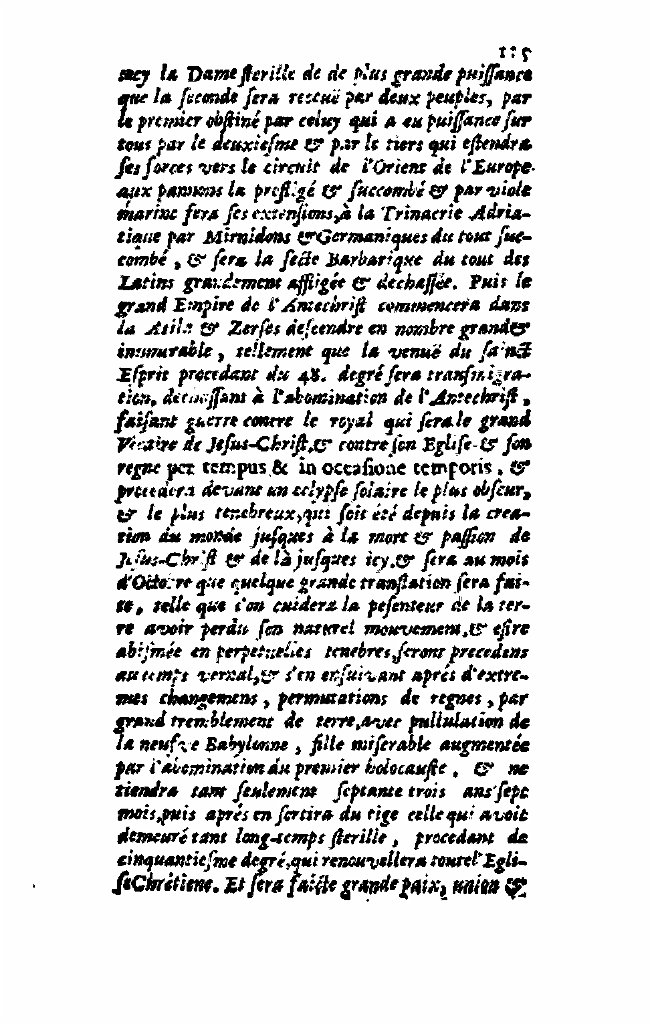 115
mcy la Dame sterille de de plus grande puissance
que la seconde sera receuë par deux peuples, par
le premier obstiné par celuy qui a eu puissance sur
tous par le deuxiesme & par le tiers qui estendra
ses forces vers le circuit de l'Orient de l'Europe
aux pannons la profligé & succombé & par viole
marine fera ses extensions,à la Trinacrie Adria-
tique par Mirnidons & Germaniques du tout suc-
combé, & sera la secte Barbarique du tout des
Latins grandement affligée & dechassée. Puis le
grand Empire de l'Antechrist commencera dans
la Atila & Zerses descendre en nombre grand &
innumrable, tellement que la venuë du sainct
Esprit procedant du 48. degré sera transmigra-
tion, dechassant à l'abomination de l'Antechrist,
faisant guerre contre le royal qui sera le grand
Vicaire de Jesus-Christ,& contre son Eglise & son
regne per tempus & in occasione temporis, &
precedera devant un eclypse solaire le plus obscur,
& le plus tenebreux,qui soit été depuis la crea-
tion du monde jusques à la mort & passion de
Jesus-Christ & de là jusques icy,& sera au mois
d'Octobre que quelque grande translation sera fai-
te, telle que l'on cuidera la pesenteur de la ter-
re avoir perdu son naturel mouvement,& estre
abismée en perpetuelles tenebres,seront precedens
au temps vernal,& s'en ensuivant aprés d'extre-
mes changemens, permutations de regnes, par
grand tremblement de terre,avec pullulation de
la neufve Babylonne, fille miserable augmentée
par l'abomination du premier holocauste, & ne
tiendra tant seulement septante trois ans sept
mois,puis aprés en sortira du tige celle qui avoit
demeuré tant long-temps sterille, procedant de
cinquantiesme degré,qui renouvellera tout l'Egli-
se Chrétiene. Et sera faicte grande paix, union &